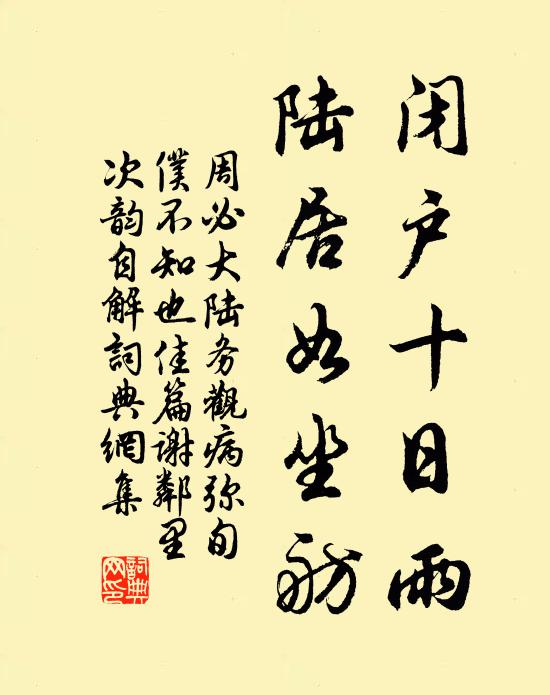 闭户十日雨
陆居如坐舫
周必大陆务觀病弥旬
僕不知也佳篇谢鄰里
次韵自解詞典網集
詞典
网印